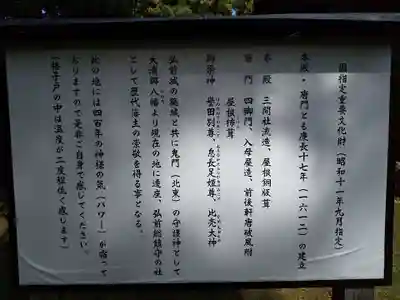 国指定重要文化財（昭和十一年九月指定）
本殿・唐門とも慶長十七年（一六一二）の建立
本殿 三間社流造、屋根銅版葺
唐門 四脚門、入母屋造、前後軒唐破風附
屋根柿葺
御祭神 誉田別尊、息長足姫尊、比売大神
弘前城の築城と共に鬼門（北東）の守護神として
大浦郷八幡より現在の地に遷座、弘前総鎮守の社
として歴代藩主の崇敬を得る事となる。
此の地には四百年の神様の気（パワー）が宿って
おりますので是非ご自身で感じてください。
（格子戸の中は温度が二度程低く感じます）